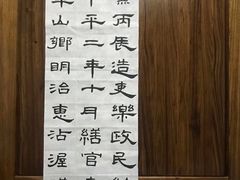 丙辰造吏樂政民
平二年十月繕官
山鄉明治惠沾渥